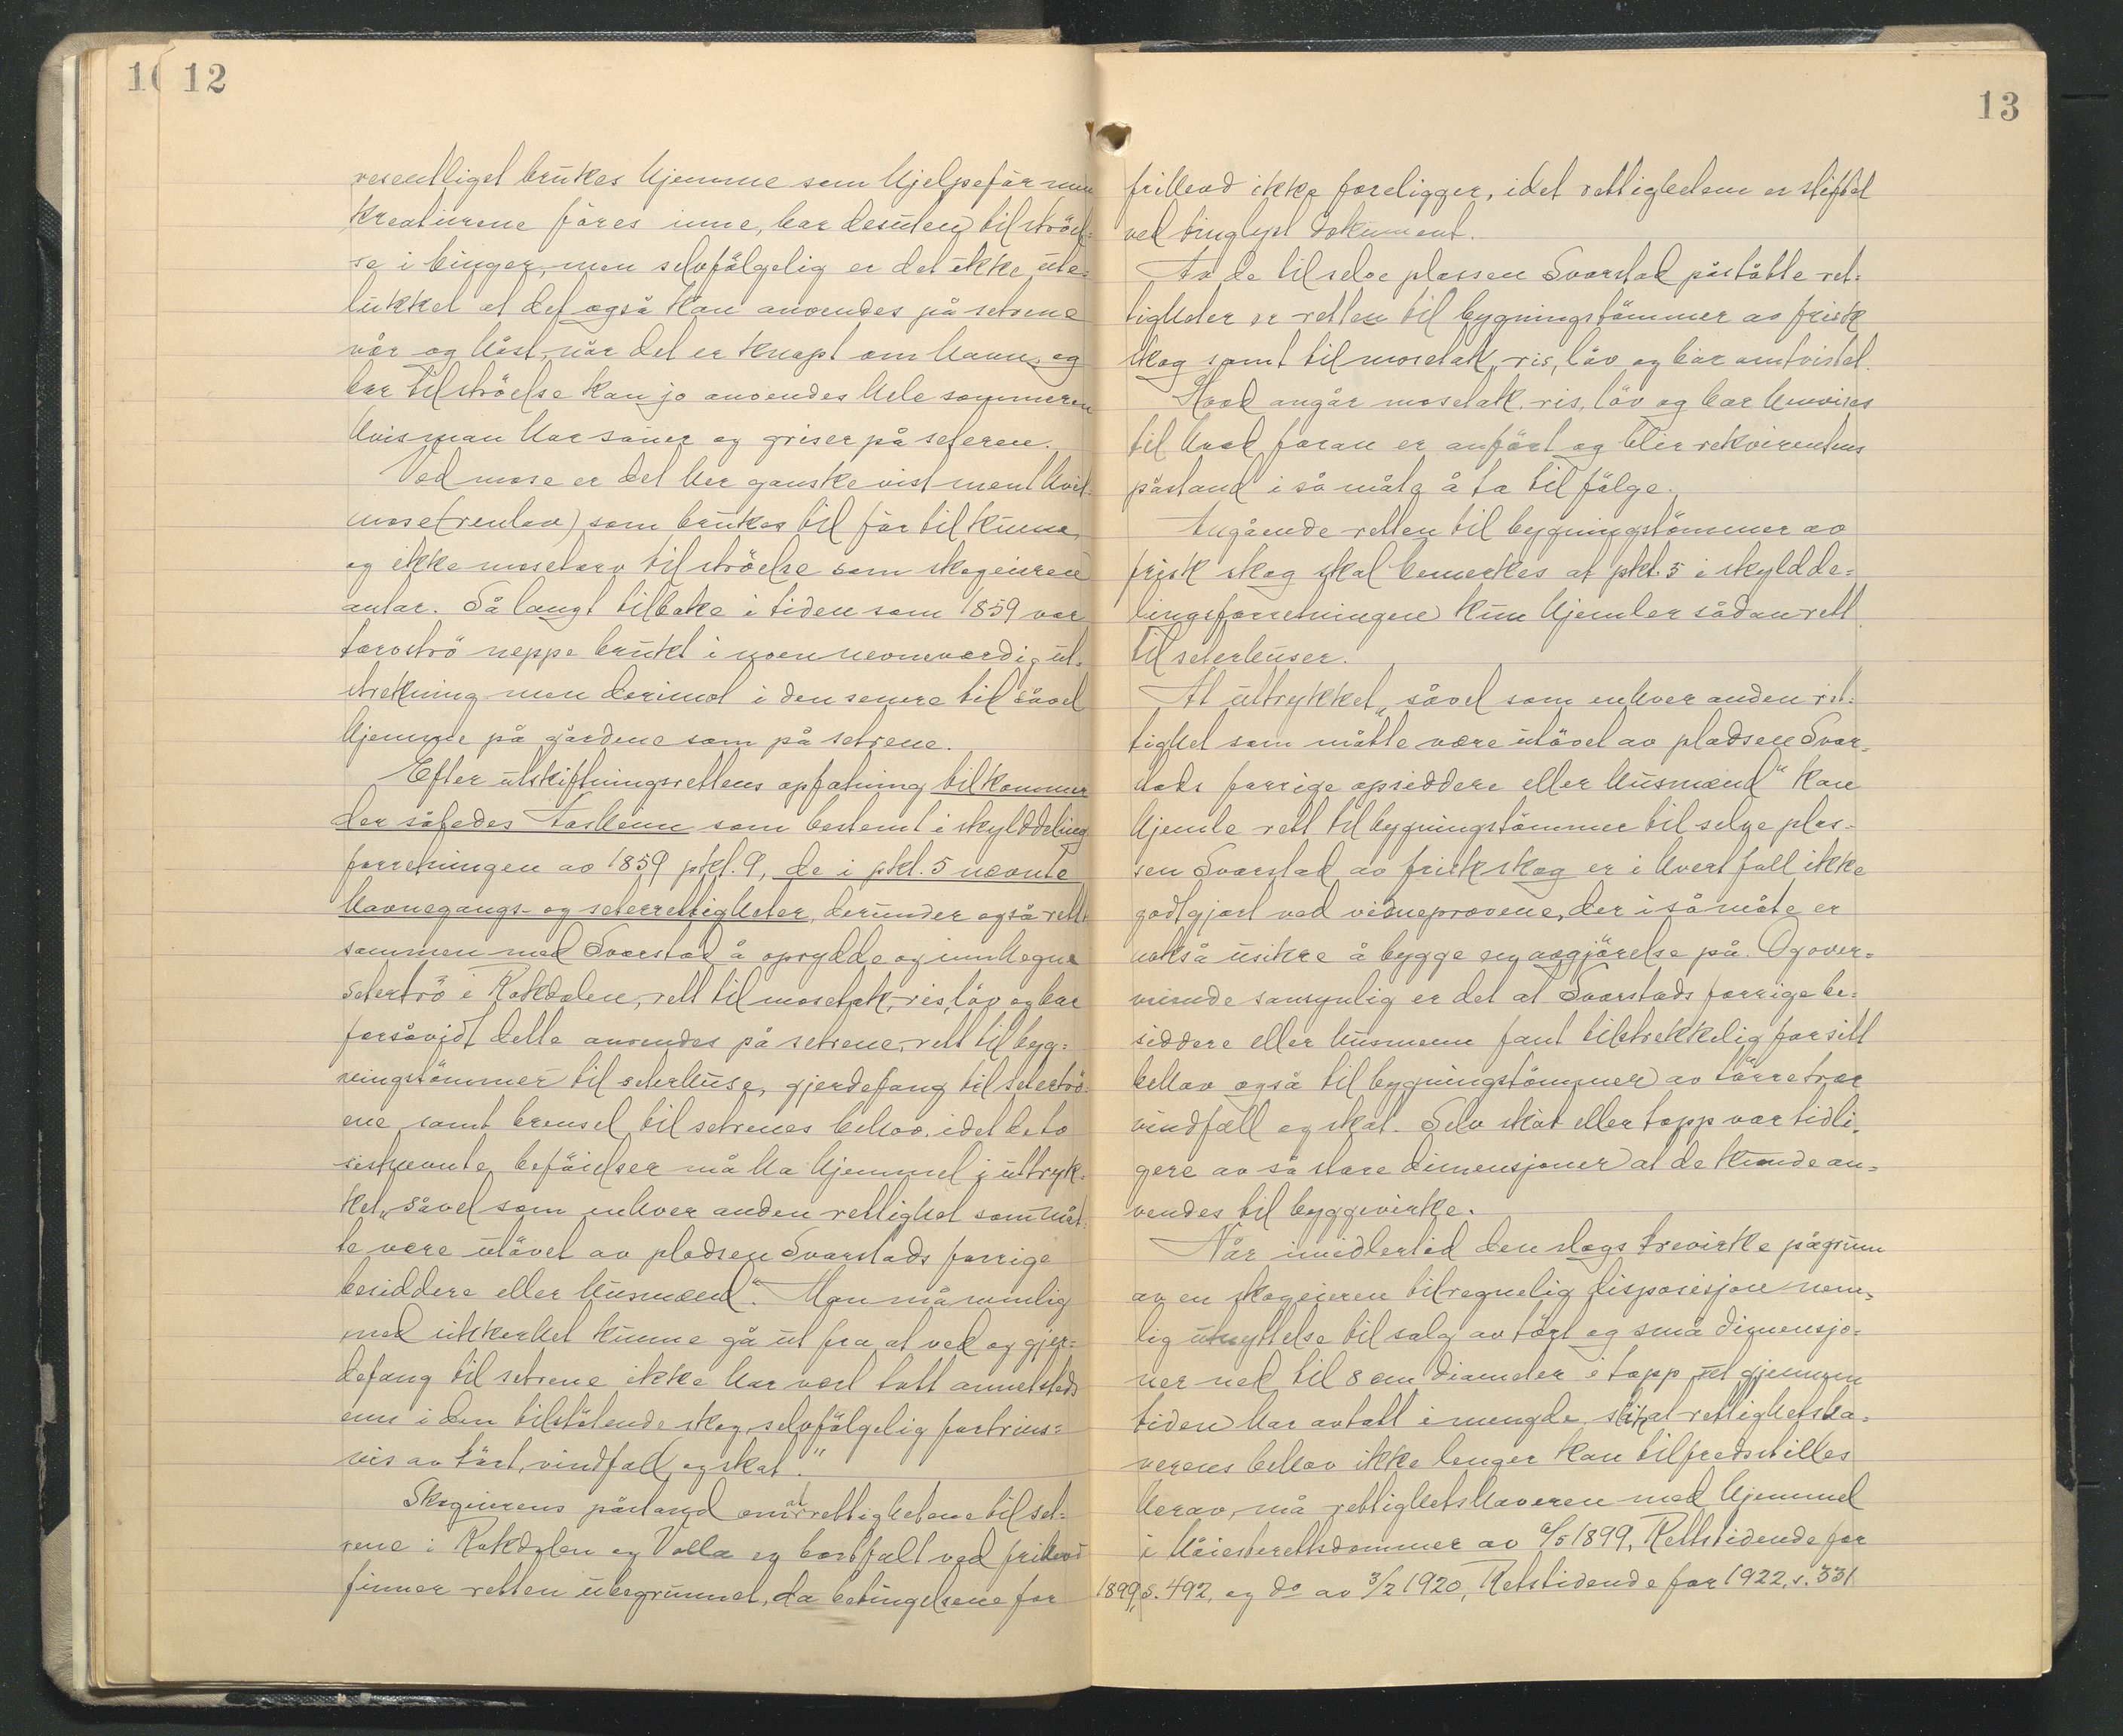 10 12
vesentligst brukes hjemme som hjelpefôr når
kreaturene fôres inne, bar desuten til ströel-
se i binger, men selvfölgelig er det ikke ute-
lukket at det også kan anvendes på setrene
vår og höst, når det er knapt om havn, og
bar til ströelse kan jo anvendes hele sommeren
hvis man har sauer og griser på seteren.
Ved mose er det her ganske vist ment kvit-
mose (renlav) som brukes til fôr til kuene,
og ikke mosetorv til ströelse som skogeieren
antar. Så langt tilbake i tiden som 1859 var
torvströ neppe brukt i noen nevneverdig ut-
strekning men derimot i den senere tid såvel
hjemme på gårdene som på setrene.
Efter utskiftningsrettens opfatning tilkommer
der således Forsheim som bestemt i skylddelings
forretningen av 1859 pkt. 9, de i pkt. 5 nevnte
havnegangs- og seterrettigheter, derunder også rett
sammen med Svarstad å oprydde og innhegne
setertrö i Rokdalen, rett til mosetak, ris, löv og bar
forsåvidt dette anvendes på setrene, rett til byg-
ningstömmer til seterhuse, gjerdefang til setertrö-
ene samt brensel til setrenes behov, idet de to
sistnevnte beföielser må ha hjemmel i uttryk-
ket „såvel som enhver anden rettighet som måt-
te være utövet av pladsen Svarstads forrige
besiddere eller husmænd". Man må nemlig
med sikkerhet kunne gå ut fra at ved og gjer-
defang til setrene ikke har vært tatt annetsteds
enn i den tilstötende skog, selvfölgelig fortrins-
vis av tört, vindfall og skat."
Skogeierens påstand om at rettighetene til set-
rene i Rokdalen og Volla er bortfalt ved frihevd
finner retten ubegrunnet, da betingelsene for
13
frihevd ikke foreligger, idet rettigheten er stiftet
ved tinglyst dokument.
Av de til selve plassen Svarstad påståtte ret-
tigheter er retten til bygningstömmer av frisk
skog samt til mosetak, ris, löv og bar omtvistet.
Hvad angår mosetak, ris, löv og bar henvises
til hvad foran er anfört og blir rekvirentens
påstand i så måte å ta til fölge.
Angående retten til bygningstömmer av
frisk skog skal bemerkes at pkt. 5 i skyldde-
lingsforretningen kun hjemler sådan rett
til seterhuser.
At uttrykket „såvel som enhver anden ret-
tighet som måtte være utövet av pladsen Svar-
stads forrige opsiddere eller husmænd" kan
hjemle rett til bygningstömmer til selve plas-
sen Svarstad av frisk skog er i hvert fall ikke
godtgjort ved vidneprovene, der i så måte er
nokså usikre å bygge en avgjörelse på. Og over-
veiende sansynlig er det at Svarstads forrige be-
siddere eller husmenn fant tilstrekkelig for sitt
behov også til bygningstömmer av törre trær
vindfall og skat. Selv skat eller topp var tidli-
gere av så store dimensjoner at de kunde an-
vendes til byggevirke.
Når imidlertid den slags trevirke på grunn
av en skogeieren tilregnelig disposisjon nem-
lig utnyttelse til salg av tört og små dimensjo-
ner ned til 8 cm diameter i topp, ut gjennem
tiden har avtatt i mengde, slik at rettighetsha-
verens behov ikke lenger kan tilfredsstilles
herav, må rettighetshaveren med hjemmel
i höiesterettsdommer av 6/5 1899, Rettstidende for
1899, s. 492, og do av 3/2 1920, Retstidende for 1922, s. 331